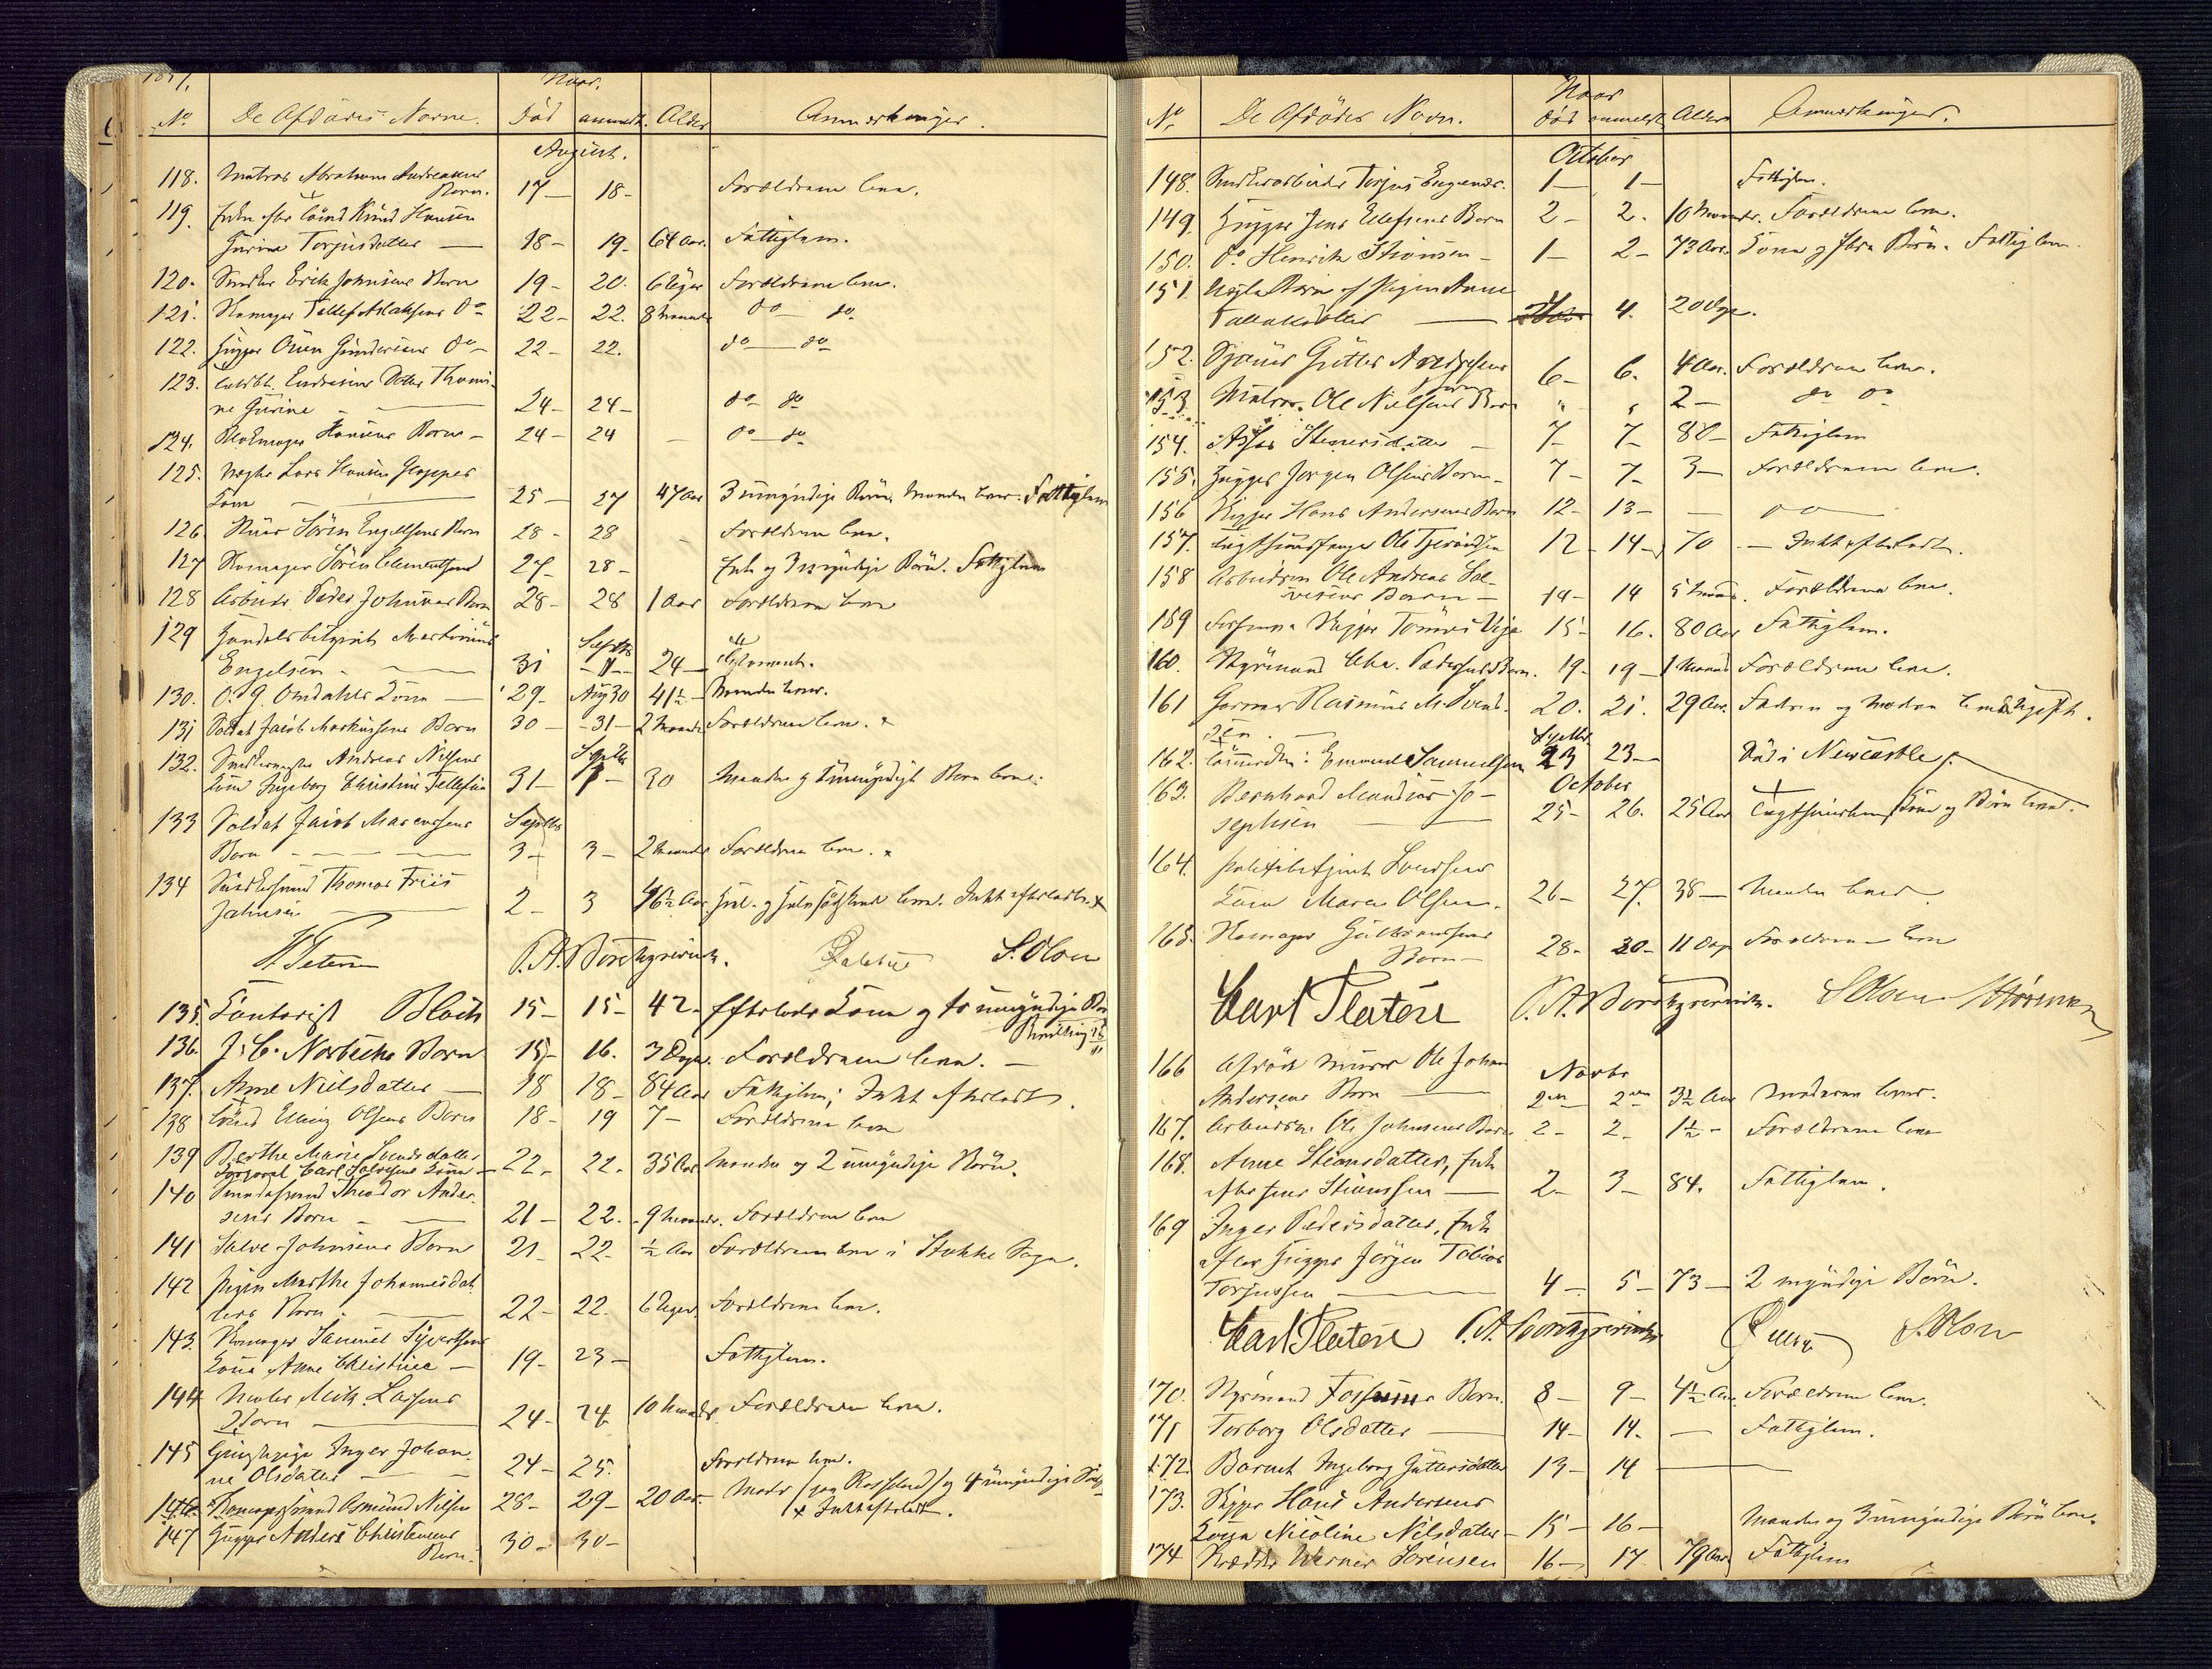 No De Afdødes Navne. Naar. Død anmeldt. Alder Anmerkninger.
August.
118. Matros Abraham Andreasens
Barn. 17 — 18 - Forældrene leve.
119. Enke efter Knud Hansen
Gurine Torjusdatter — 18 - 19 - 64 Aar. Fattiglem.
120. Snedker Erik Johnsens Barn 19 - 20. 6 Uger Forældrene leve.
121. Skomager Tellef Aslaksens do 22 - 22. 8 Maaneder do — do
122. Hugger Ouen Gundersens do 22 - 22. do — do
123. Endresens Datter Thomi-
ne Gurine — 24 - 24 - do do
124. Hansens Barn - 24 - 24 — do — do
125. Lars Hansen
Kone — 25 — 27 47 Aar 3 umyndige Børn. Manden lever. Fattiglem
126. Søren Engelsens Barn 28 - 28 - Forældrene leve.
127 Skomager Søren Clementsen 27 - 28 - Enke og 3 umyndige Børn. Fattiglem
128 Arbeids. Peder Johnsens Barn 28 - 28 1 Aar Forældrene leve
129 Handelsbetjent Martinius Septbr
Engelsen — 31 - 1 - 24 — Testament.
130. O. G. Omdahls Kone — 29 - Aug 30 41½ - Manden lever.
131 Soldat Jacob Markussens Barn 30 — 31 — 2 Maaneder Forældrene leve. x
132. Andreas Nilsens Septbr
Kone Ingeborg Christine Tellefsen 31 — 1 — 30 Manden og 1 umyndigt Barn leve.
133 Soldat Jacob Marcussens Septbr
Barn — 3 — 3 — 2 Maaneder Forældrene leve. x
134 Snedkersvend Thomas Friis
Johnsen — 2 - 3 46½ Aar Hel- og halvsødskende leve. Intet efterladt. x
H. Petersen P. A. Borchgrevink. S. Olsen
135. Kantorist Bloch 15 — 15 — 42 - Efterlader Kone og to umyndige Børn
136. J. C. Norbecks Barn 15 - 16. 3 Dage. Forældrene leve. —
137. Anne Nielsdatter — 18 18 - 84 Aar Fattiglem; Intet efterladt.
138 Elling Olsens Barn 18 - 19 7 — Forældrene leve
139 Berthe Marie Svendsdatter
Corporal Carl Salvesens Kone — 22 - 22. 35 Aar Manden og 2 umyndige Børn.
140 Theodor Ander-
sens Barn — 21 — 22 - 9 Maaneder. Forældrene leve
141 Salve Johnsens Barn 21 - 22 - ½ Aar Forældrene leve i Stokke Sogn.
142 Pigen Marthe Johannesdat-
ters Barn. — 22 — 22. 6 Uger Forældrene leve.
143. Skomager Samuel Syvertsens
Kone Anne Christine — 19 - 23 — Fattiglem.
144 Lassens
Barn — 24 - 24 10 Maaneder Forældrene leve.
145 Inger Johan-
ne Olsdatter — 24 — 25. Forældrene leve.
146. Asmund Nilsen 28 - 29 - 20 Aar. Moder (paa Rosseland) og 4 umyndige
x Intet efterladt.
147 Hugger Anders Christensens
Barn. 30 - 30 -
No De Afdødes Navn. Naar død anmeldt Alder Anmerkninger.
October
148. Snedkerarbeider Torjus 1 — 1 — Fattiglem.
149. Hugger Jens Ellefsens Barn 2 - 2. 10 Maaneder. Forældrene leve.
150. do Henrik Stiansen — 1 — 2 — 73 Aar. Kone og flere Børn. Fattiglem
151. Barn af Pigen Anne
Tallaksdatter — 4. 20 Dage.
152. Gutter
6 - 6. 4 Aar. Forældrene leve.
153 Matros Ole Nielsens Barn " " 2 — do do
154. Stenersdatter — 7 - 7 - 80 - Fattiglem
155. Hugger Jørgen Olsens Barn — 7 - 7 - 3 — Forældrene leve.
156 Skipper Hans Andersens Barn 12 - 13 - — do
157. Tugthuusfange Ole 12 - 14 - 70 — Intet efterladt.
158 Arbeidsm. Ole Andreas Sal-
vesens Barn — 14 - 14 5 Maaneder. Forældrene leve.
159 Skipper 15 - 16. 80 Aar Fattiglem.
160. Styrmand Chr. Pedersens Barn. 19 - 19 — 1 Maaned Forældrene leve.
161 Garver Rasmus M. Svend-
sen. — 20. 21. 29 Aar. Faderen og Moderen leve. Ugift.
Septbr
162. Emanuel Samuelsen 23 23 — Død i Newcastle.
October
163. Bernhard Mandius Jo-
sephsen — 25 - 26. 25 Aar Tugthuuslem, Kone og Børn leve.
164. Politibetjent Svendsens
Kone Maren Olsen. 26 — 27. 38 — Manden lever.
165. Skomager Gulbrandsens
Barn — 28 - 30 - 11 Dage Forældrene leve
Carl Platou P. A. Borchgrevink. S. Olsen
166 Afdøde Murer Ole Johan Novbr
Andersens Barn — 2 — 2 — 3½ Aar Moderen lever.
167. Arbeidsm. Ole Johnsens Barn 2 - 2 - 1½ - Forældrene leve
168. Anne Steansdatter, Enke
efter Jens Stiansen — 2 - 3 - 84. Fattiglem.
169 Inger Pedersdatter, Enke
efter Hugger Jørgen Tobias
Torjussen — 4 — 5 — 73 — 2 myndige Børn.
Carl Platou P. A. Borchgrevink S. Olsen
170. Styrmand Barn. 8 — 9 — 4½ Aar Forældrene leve.
171 Torborg Olsdatter — 14 — 14. — Fattiglem.
172. Barnet Ingeborg Guttersdatter 13 — 14 —
173. Skipper Hans Andersens
Kone Nicoline Nilsdatter — 15 — 16 — Manden og 3 umyndige Børn leve.
174 Werner Sørensen 16 — 17. 79 Aar Fattiglem